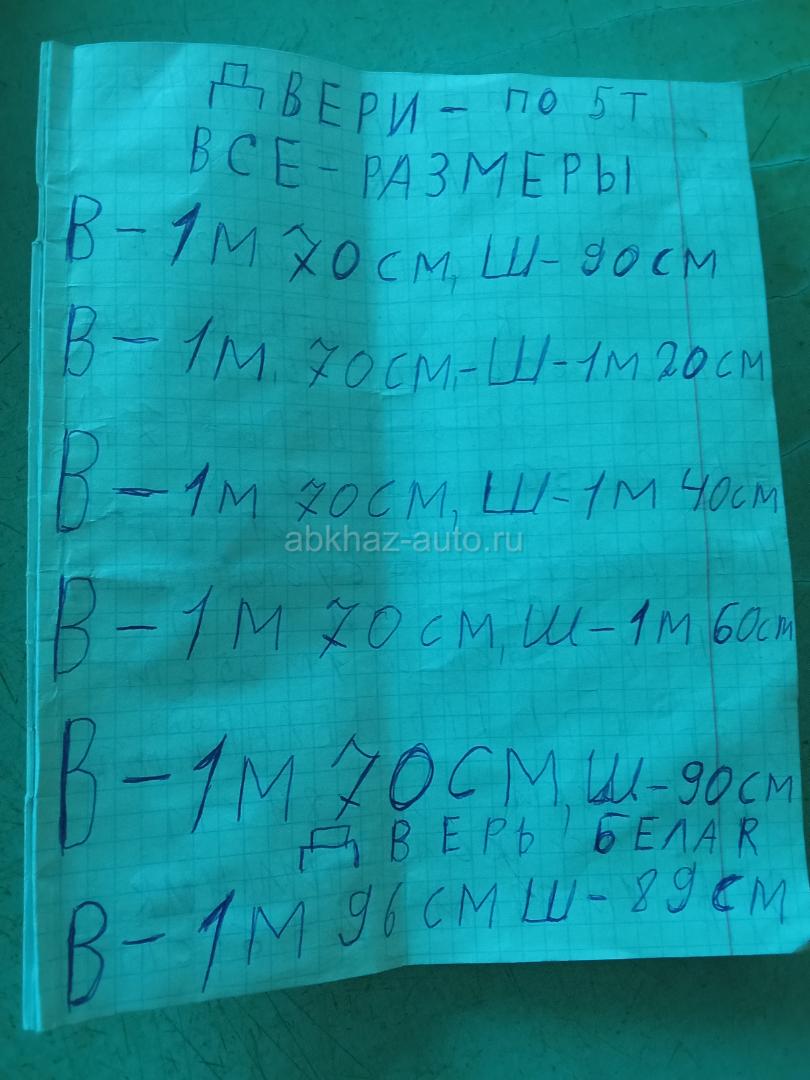 ДВЕРИ - ПО 5Т
ВСЕ - РАЗМЕРЫ
В - 1М 70СМ, Ш - 90СМ
В - 1М. 70СМ, - Ш - 1М 20СМ
В - 1М 70СМ, Ш - 1М 40СМ
abkhaz-auto.ru
В - 1М 70СМ, Ш - 1М 60СМ
В - 1М 70СМ, Ш - 90СМ
ДВЕРЬ БЕЛАR
В - 1М 96СМ Ш - 89СМ